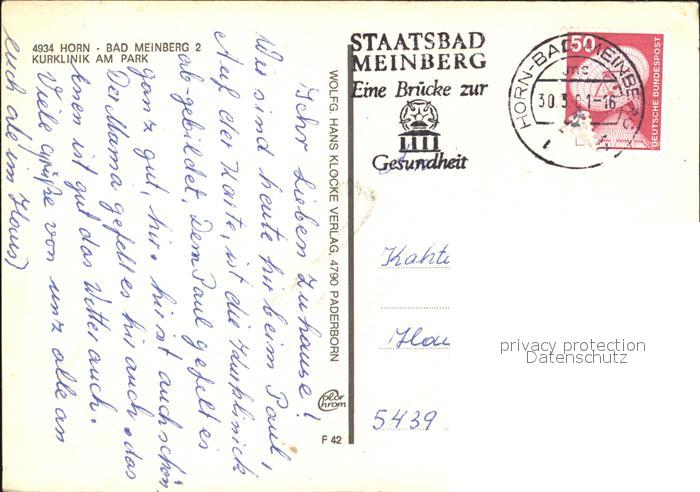 4934 HORN - BAD MEINBERG 2
KURKLINIK AM PARK
Ihr Lieben Zuhause!
Wir sind heute hir beim Paul,
Auf der Karte, ist die Kurklinick
ab-gebildet. Dem Paul gefelt es
ganz gut, hir. hir ist auch schön.
Der Mama gefelt es hir auch. das
Essen ist gut das Wetter auch.
Viele grüße von unz alle an
euch ale im Haus)
WOLFG. HANS KLOCKE VERLAG, 4790 PADERBORN
Color
Chrom
F 42
STAATSBAD
MEINBERG
Eine Brücke zur
Gesundheit
HORN-BAD MEINBERG
30.3. 1-16
50
DEUTSCHE BUNDESPOST
Kaht
Hau
5439
privacy protection
Datenschutz